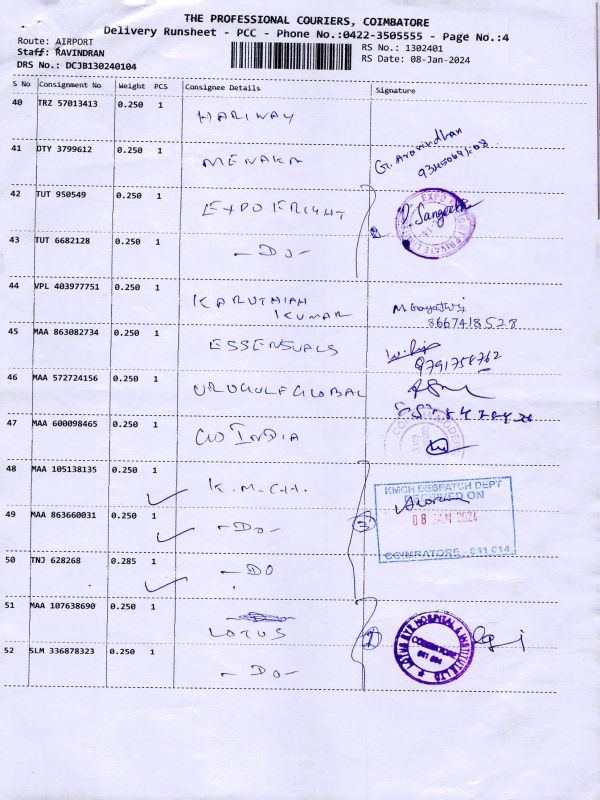 THE PROFESSIONAL COURIERS, COIMBATORE
Delivery Runsheet - PCC - Phone No.:0422-3505555 - Page No.:4
Route: AIRPORT
RS No.: 1302401
Staff: RAVINDRAN
RS Date: 08-Jan-2024
DRS No.: DCJB130240104
S No Consignment No Weight PCS Consignee Details Signature
40 TRZ 57013413 0.250 1 HARIWAY
41 DTY 3799612 0.250 1 MENAKA G. Aravindhan
42 TUT 950549 0.250 1 EXPO FRIGHT D. Sangeetha
EXPO
PRIVATE
43 TUT 6682128 0.250 1 - DO - 2
44 VPL 403977751 0.250 1 KARUTHIAH
KUMAR
M. Gayathri
8667418528
45 MAA 863082734 0.250 1 ESSENSUALS
9791758762
46 MAA 572724156 0.250 1 UROGULF GLOBAL
47 MAA 600098465 0.250 1 GO INDIA
48 MAA 105138135 0.250 1 K.M.C.H.
KMCH DESPATCH DEPT
RECEIVED ON
49 MAA 863660031 0.250 1 - DO - 3
08 JAN 2024
50 TNJ 628268 0.285 1 - DO
COIMBATORE - 641 014
51 MAA 107638690 0.250 1 LOTUS 2
LOTUS EYE HOSPITAL & INSTITUTE LTD
COIMBATORE
641 014
52 SLM 336878323 0.250 1 - DO -